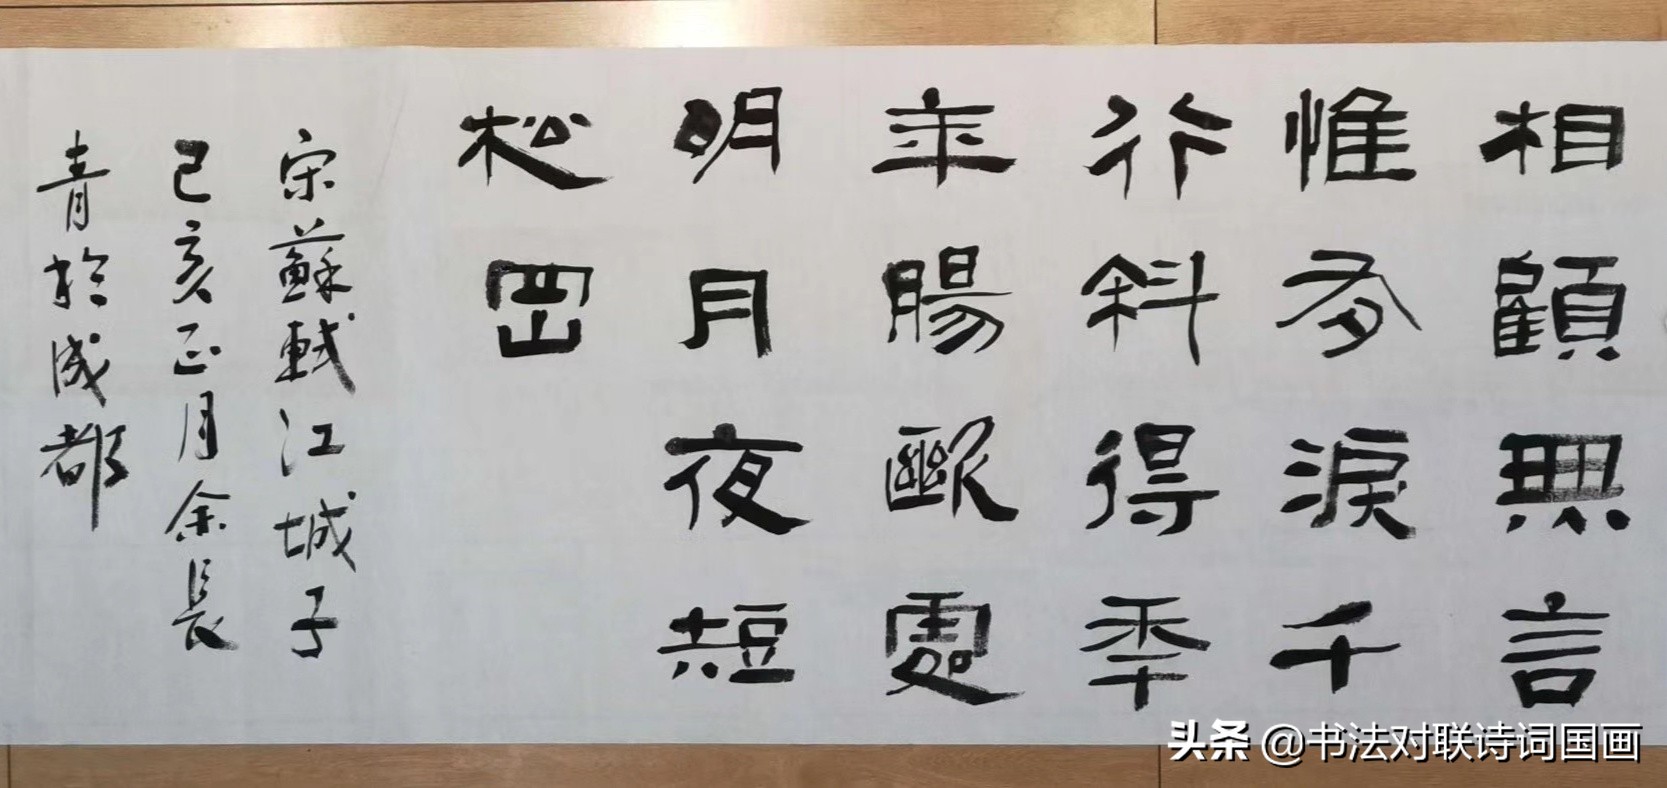 相顧無言
惟有淚千
行料得秊
年腸斷處
明月夜短
松岡
宋蘇軾江城子
己亥正月余長
青於成都
头条 @书法对联诗词国画